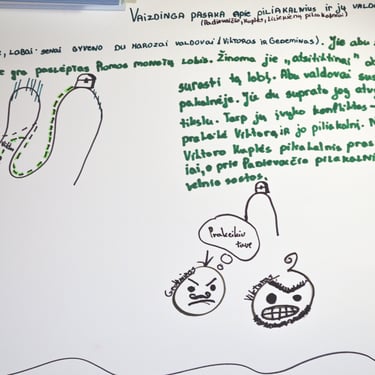 Vaizdinga pasaka apie piliakalnius ir jų valdo
(Padievaičio, Kuplės,
, labai senai gyveno du narozai valdovai (Viktoras ir Gedeminas). Jie abu
yra paslėptas Romos monetų lobis. Žinoma jie "atsitiktinai"
surasti tą lobį. Abu valdovai sus
pakalnėje. Jų du suprato jog atv
tikslu. Tarp jų įvyko konfliktas
prakeikė Viktorą ir jo piliakalnį.
Viktoro Kuplės piliakalnis pras
iai, o prie Padievačio piliakalni
velnio sostas.
Prakeikiu
tave
Gedeminas
Viktoras